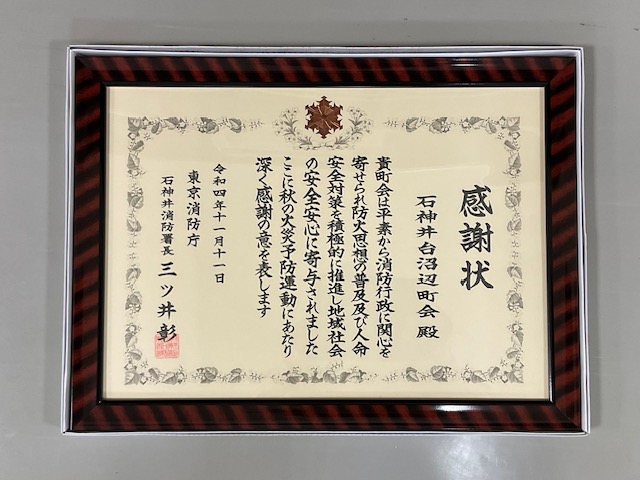 感謝状
石神井台沼辺町会 殿
貴町会は平素から消防行政に関心を
寄せられ防火思想の普及及び人命
安全対策を積極的に推進し地域社会
の安全安心に寄与されました
ここに秋の火災予防運動にあたり
深く感謝の意を表します
令和四年十一月十一日
東京消防庁
石神井消防署長 三ツ井 彰